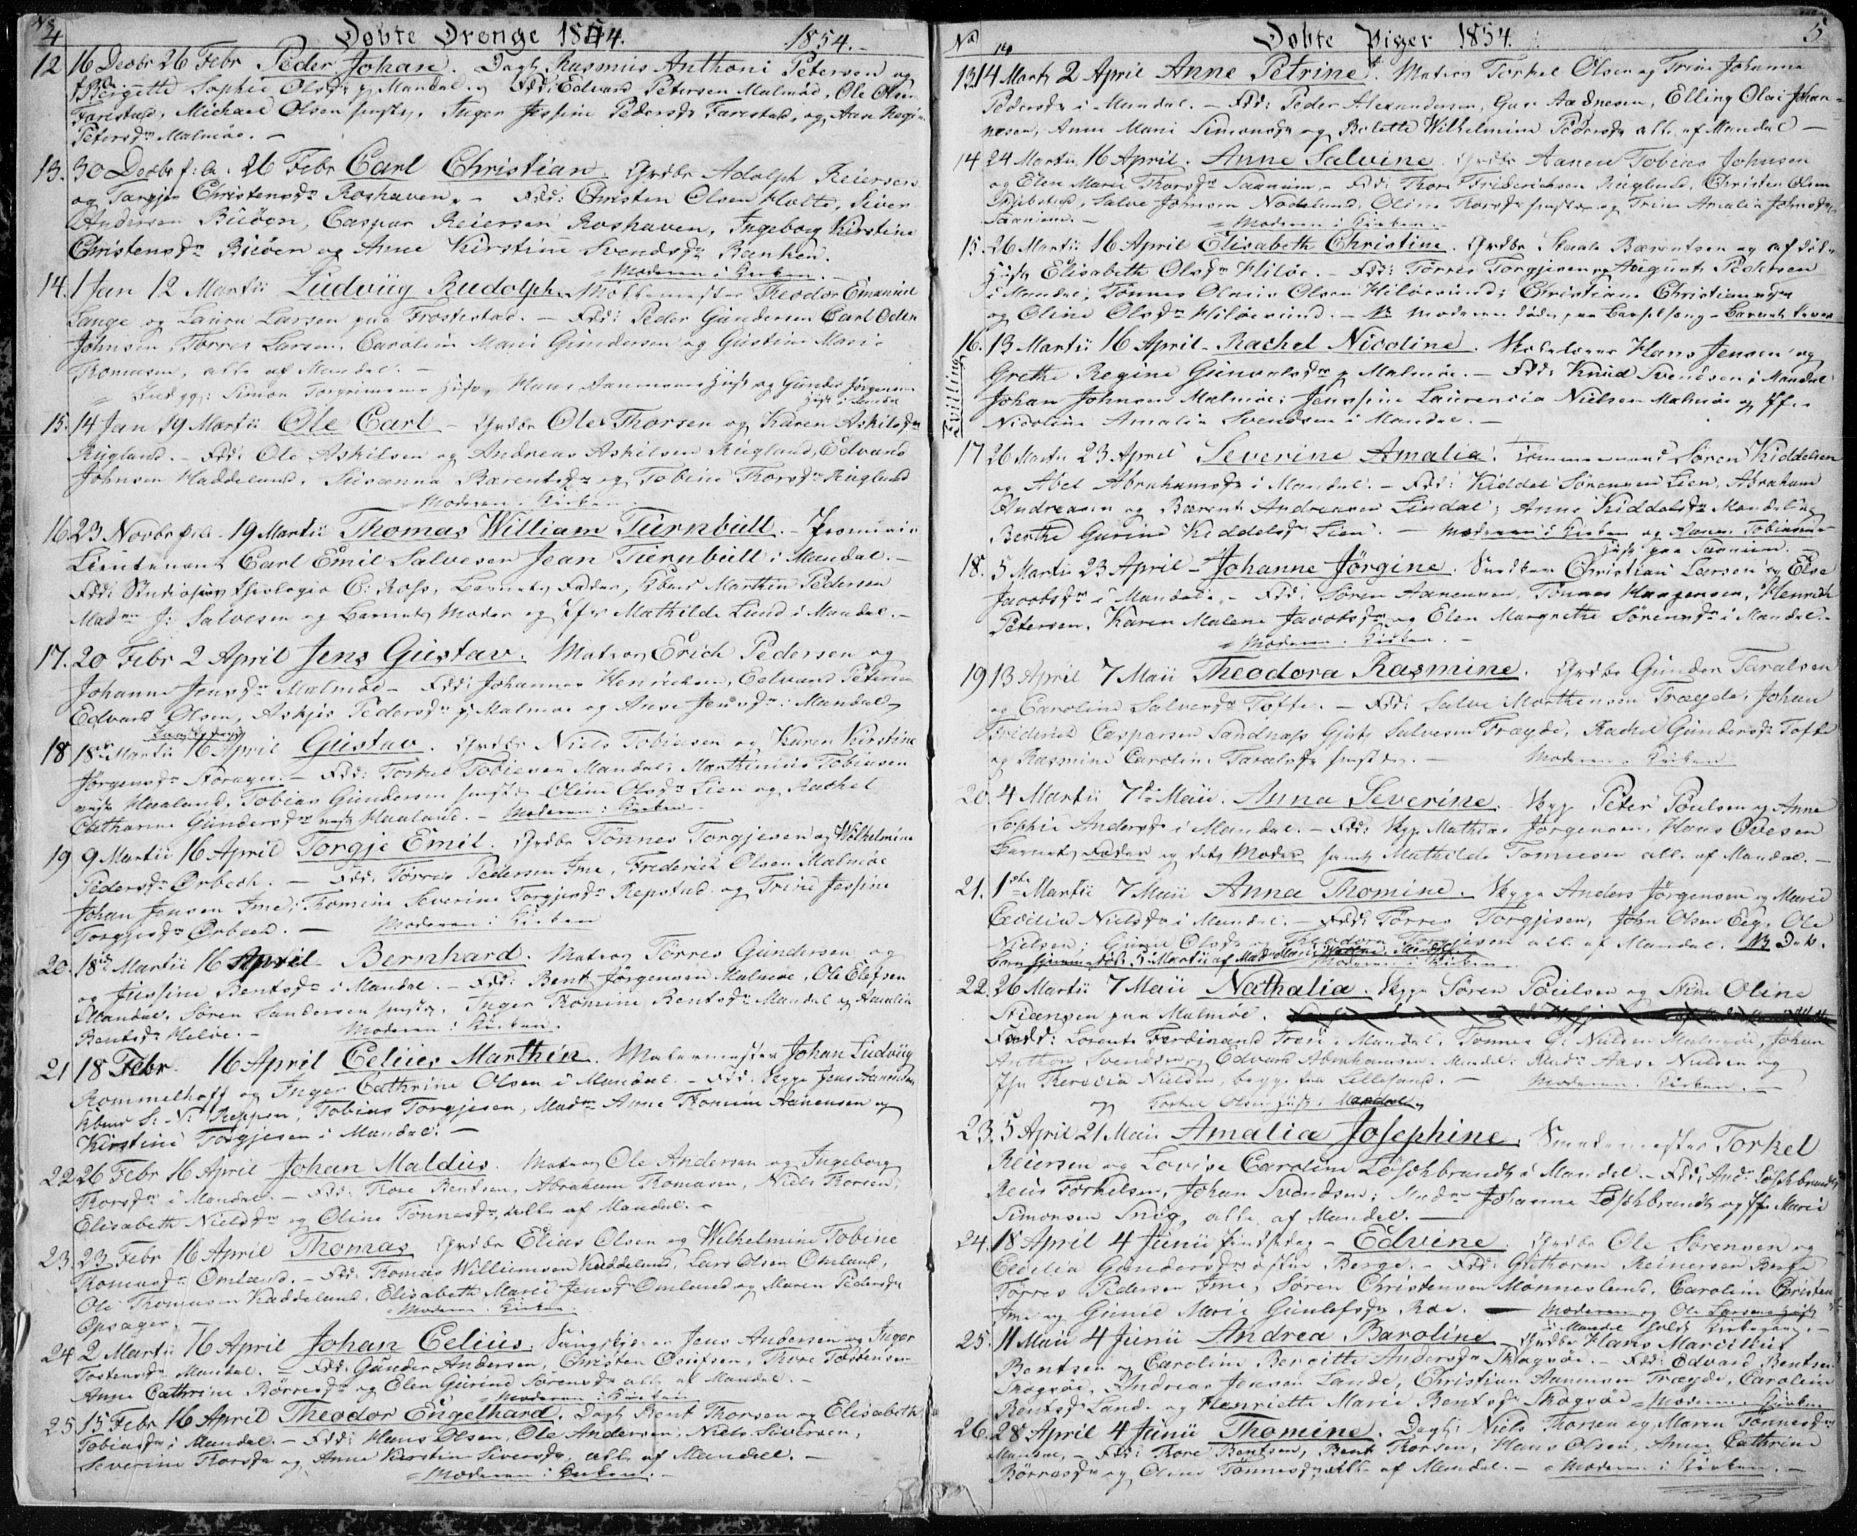 4
Døbte Drenge 1854.
1854.
12 16 Decbr 26 Febr Peder Johan. Dagl. Rasmus Anthoni Petersen og
Bergette Sophie Olsdr Mandal. Fdd: Edvard Petersen Malmöe, Ole Olsen
Farestad, Michael Olsen Inger Jessine Pedersdr Farestad, og Aase
Petersdr Malmöe. —
13. 30 Decbr 26 Febr Carl Christian. Grdbr Adolph Reiersen
og Torgjer Christensdr Roshaven. — Fdd: Christen Olsen Holte, Siver
Andersen Buöen, Caspar Reiersen Roshaven, Ingeborg Kirstine
Christensdr Buöen og Anne Kirstine Svendsdr Banken.
Moderen i Kirken. —
14. 1 Jan 12 Martii Ludvig Rudolph. Theodor Emanuel
Lange og Laura Larsen paa Frostestad. — Fdd: Peder Gundersen Carl Oden
Johnsen, Torres Larsen, Caroline Marie Gundersen og Gustine Marie
Thomasen, alle af Mandal. —
Indg: Simon Torgrimsens Hust, Hans Aanensens Hust og Gunder Jörgensens
Hust i Mandal
15. 14 Jan 19 Martii Ole Carl — Grdbr Ole Thorsen og Karen Askilsdr
Rugland. — Fdd: Ole Askilsen og Andreas Askilsen Rugland, Edvard
Johnsen Haddeland, Susanna Barentsdr og Tobine Thorsdr Rugland
Moderen i Kirken
16. 23 Novbr 19 Martii Thomas William Turnbull. — Premier
Lieutenant Carl Emil Salvesen Jean Turnbull i Mandal. —
Fdd: Studiosus theologie C. Ross, Barnets Fader, Kbmd Marthin Pedersen
Madm J: Salvesen og Barnets Moder og Jfr Mathilde Lund i Mandal. —
17. 20 Febr 2 April Jens Gustav. Matros Erich Pedersen og
Johanne Jensdr Malmöe — Fdd: Johannes Henrichsen, Edvard Petersen
Edvard Olsen, Askjer Pedersdr Malmöe og Anne Jensdr i Mandal
18 18 Martii 16 April Gustav. Grdbr Niels Tobiasen og Karen Kirstine
Jörgensdr — Fdd: Torkel Tobiesen Mandal, Marthinius Tobiasen
Haaland, Tobias Gundersen Oline Olsdr Lien og Rachel
Cathrine Gundersdr Haaland. — Moderen i Kirken
19 9 Martii 16 April Torgje Emil. Grdbr Tönnes Torgjesen og Wilhelmine
Pedersdr Örbech. — Fdd: Törres Pedersen Ime, Frederich Olsen Malmöe
Johan Jensen Ime, Thomine Severine Torgjesdr Repstad og Trine Jessine
Torgjesdr Örbech. — Moderen i Kirken
20. 18de Martii 16 April — Bernhard. Matros Törres Gundersen og
Jessine Bentsdr i Mandal. — Fdd: Bent Jörgensen Malmöe, Ole Olefsen
Mandal, Sören Sandersen Inger Thomine Bentsdr Mandal og Amalia
Bentsdr Heloe. — Moderen i Kirken.
21 18 Febr. 16 April Celius Marthin. Malermester Johan Ludvig
Rommelhoff og Inger Cathrine Olsen i Mandal. — Fdd: Skpp Jens Aanensen
Kbmd S. N. Reppen, Tobias Torgjesen, Madm Anne Thomine Aanensen og
Kirstine Torgjesen i Mandal. —
22 26 Febr 16 April Johan Maldius. Matros Ole Andersen og Ingeborg
Thorsdr i Mandal. — Fdd: Thore Bentsen, Abraham Thomasen, Niels Thorsen,
Elisabeth Nielsdr og Oline Tönnesdr, alle af Mandal. —
23. 23 Febr 16 April Thomas Grdbr Elias Olsen og Wilhelmine Tobine
Thomasdr Omland. — Fdd: Thomas Williumsen Haddeland, Lars Olsen Omland,
Ole Thomasen Haddeland, Elisabeth Marie Jensdr Omland og Maren Pedersdr
Opsager. — Moderen i Kirken.
24 2 Martii 16 April Johan Celius. Jens Andersen og Inger
Tostensdr Mandal. — Fdd: Gunder Andersen, Christen Thore Tostensen
Anne Cathrine Börresdr og Elen Gurine Sörensdr alle af Mandal. —
Moderen i Kirken
25. 15 Febr 16 April Theodor Engelhard. Dagl Bent Thorsen og Elisabeth
Tobiasdr i Mandal. — Fdd: Hans Olsen, Ole Andersen, Niels Siversen,
Severine Thorsdr og Anne Kirstin Siversdr, alle af Mandal. —
Moderen i Kirken. —
No
Døbte Piger 1854.
5
13. 14 Marts 2 April Anne Petrine. Matros Torkel Olsen og Trine Johanne
Pedersdr i Mandal. — Fdd: Peder Alexandersen, Guse Aadnesen, Elling Olai Johan-
nesen, Anne Marie Simonsdr og Bolette Wilhelmine Pedersdr alle af Mandal —
14 24 Martii 16 April. Anne Salvine. Grdbr Aanen Tobias Johnsen
og Elen Marie Thorsdr Saanum. — Fdd: Thore Friderichsen Rugland, Christen Olsen
Skibstad, Salve Johnsen Nödelund, Oline Thorsdr og Trine Amalia Johnsdr
Saanum. — Moderen i Kirken. —
15. 26 Martii 16 April Elisabeth Christine. Grdbr Skaale Bærentsen og afdöde
Hust Elisabeth Olsdr Hilöe. — Fdd: Törres Torgjesen og August Pedersen
i Mandal, Tönnes Olaus Olsen Hilöesund; Christiane Christiansdr
og Oline Olsdr Hilöesund. — NB Moderen döde paa Barselseng — Barnet lever
16. 13 Martii 16 April — Rachel Nicoline. Hans Jensen og
Grethe Regine Gunvalsdr Malmöe. — Fdd: Knud Svendsen i Mandal
Johan Johnsen Malmöe, Jenssine Laurencia Nielsen Malmöe og Jfr
Nicoline Amalia Svendsen i Mandal. —
Tvilling
17 26 Martii 23 April Severine Amalia. Tömmermand Sören Kiddelsen
og Abel Abrahamsdr i Mandal. — Fdd: Kiddel Sörensen Lien, Abraham
Andreasen og Bærent Andreasen Lindal, Anne Kiddelsdr Mandal og
Berthe Gurine Kiddelsdr Lien. — Moderen i Kirken og Aanen Tobiasens
Hust paa Saanum.
18. 5 Martii 23 April — Johanne Jörgine. Snedker Christian Larsen og Else
Jacobsdr i Mandal. — Fdd: Sören Aanensen, Tönnes Haagensen, Henrich
Petersen, Karen Malene Jacobsdr og Elen Margrethe Sörensdr i Mandal. —
Moderen i Kirken. —
19 13 April 7 Maii Theodora Rasmine. Grdbr Gunder Taralsen
og Caroline Salvesdr Tofte. — Fdd: Salve Mortensen Trægde, Johan
Friderich Caspersen Sandnæss Gjert Salvesen Trægde, Rachel Gundersdr Tofte
og Rasmine Caroline Taralsdr — Moderen i Kirken
20. 4 Martii 7de Maii. Anna Severine. Skpp Peter Poulsen og Anne
Sophie Andersdr i Mandal. — Fdd: Skpp Mathias Jörgensen, Hans Ovesen
Barnets Fader og dets Moder samt Mathilde Tönnesen alle af Mandal. —
21. 1ste Martii 7 Maii Anna Thomine. Skpp Anders Jörgensen og Marie
Cecilia Nielsdr i Mandal. — Fdd: Törres Torgjesen, John Olsen Eeg, Ole
Nielsen, Gunie Olsdr og Theodora Torgjesen alle af Mandal. NB Dette
Barn hjemmedöbt 5 Martii af
Moderen i Kirken
22. 26 Martii 7 Maii Nathalia. Skpp Sören Poulsen og Stine Oline
Steensen paa Malmöe.
Fadd: Lorents Ferdinand Treu i Mandal, Tönnes G. Nielsen Malmöe, Johan
Anthon Svendsen og Edvard Abrahamsen Mandal, Madm Aase Nielsen og
Jfr Theresia Nielsen, begge fra Lillesand. — Moderen i Kirken. —
og Torkel Olsens Hust i Mandal
23. 5 April 21 Maii Amalia Josephine. Smedemester Torkel
Reiersen og Lovise Caroline Löschbrandt i Mandal — Fdd: Andr Löschbrandt,
Reier Torkelsen, Johan Svendsen, Madm Johanne Löschbrandt og Jfr Marie
Simonsen Snög, alle af Mandal. —
24. 18 April 4 Junii Pindsedag — Edvine. Grdbr Ole Sörensen og
Cecilia Gundersdr östre Berge. — Fdd: Guthorm Reinersen Berge
Törres Pedersen Ime, Sören Christensen Mönnesland, Caroline Christensdr
Ime og Gunie Marie Gunlefsdr Roe. — Moderen og Ole Larsens Hust
i Mandal holdt Kirkegang. —
25. 11 Maii 4 Junii Andrea Baroline Grdbr Hans Marcillius
Bentsen og Caroline Bergitte Andersdr Skogsöe. — Fdd: Edvard Bentsen
Skogsöe, Andreas Jensen Lande, Christian Aanensen Trægde, Caroline
Bentsdr Lande og Henriette Marie Bentsdr Skogsöe — Moderen i Kirken
26. 28 April 4 Junii Thomine. Dagl: Niels Thorsen og Maren Tönnesdr
Mandal, — Fdd: Thore Bentsen, Bent Thorsen, Hans Olsen, Anne Cathrine
Börresdr og Oline Tönnesdr, alle af Mandal. — Moderen i Kirken. —